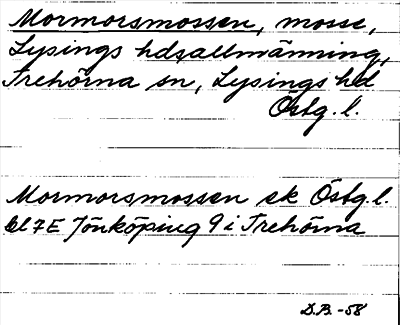 Mormorsmossen, mosse,
Lysings hdsallmänning,
Trehörna sn, Lysings hd
Östg. l.
Mormorsmossen ek Östg. l.
bl 7E Jönköping 9 i Trehörna
D.B. -58